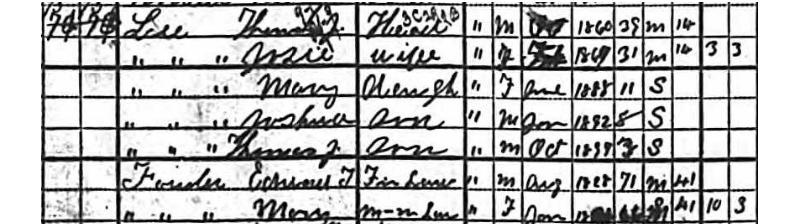 Lee Thomas J. Head " M 1860 39 M 14
" " " Josie wife " F 1869 31 M 14 3 3
" " " Mary Daugh " F June 1888 11 S
" " " Joshua Son " M Jan 1892 8 S
" " " Thomas J Son " M Oct 1899 S
Edward T " M Aug 1828 71 M 41
" " " Mary m-in Law " F Jan M 41 10 3